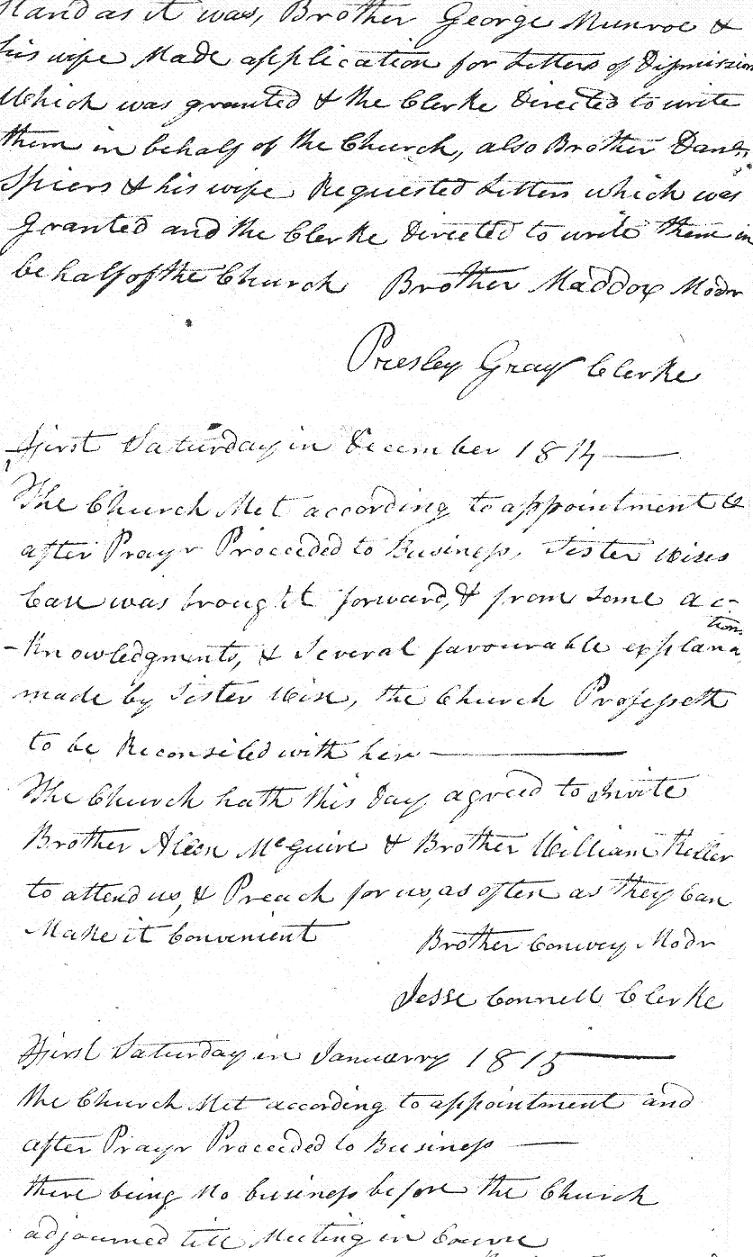 stand as it was, Brother George Munroe &
his wife Made application for Letters of Dismission
Which was granted & the Clerke Directed to write
them in behalf of the Church, also Brother Danl,
Spiers & his wife Requested Letters which was
Granted and the Clerke Directed to write them in
behalf of the Church Brother Maddox Modr
Presley Gray Clerke
First Saturday in December 1814
The Church Met according to appointment &
after Prayr Proceeded to Business, Sister Wises
Case was brought forward, & from some ac-
-Knowledgments, & Several favourable explanations
made by Sister Wise, the Church Professeth
to be Reconsiled with her
The Church hath this Day agreed to Invite
Brother Allen Mcguire & Brother William Keller
to attend us, & Preach for us, as often as they Can
Make it Convenient
Brother Conwey Modr
Jesse Connell Clerke
First Saturday in Januarry 1815
the Church Met according to appointment and
after Prayr Proceeded to Business
there being No business before the Church
adjourned till Meeting in Course